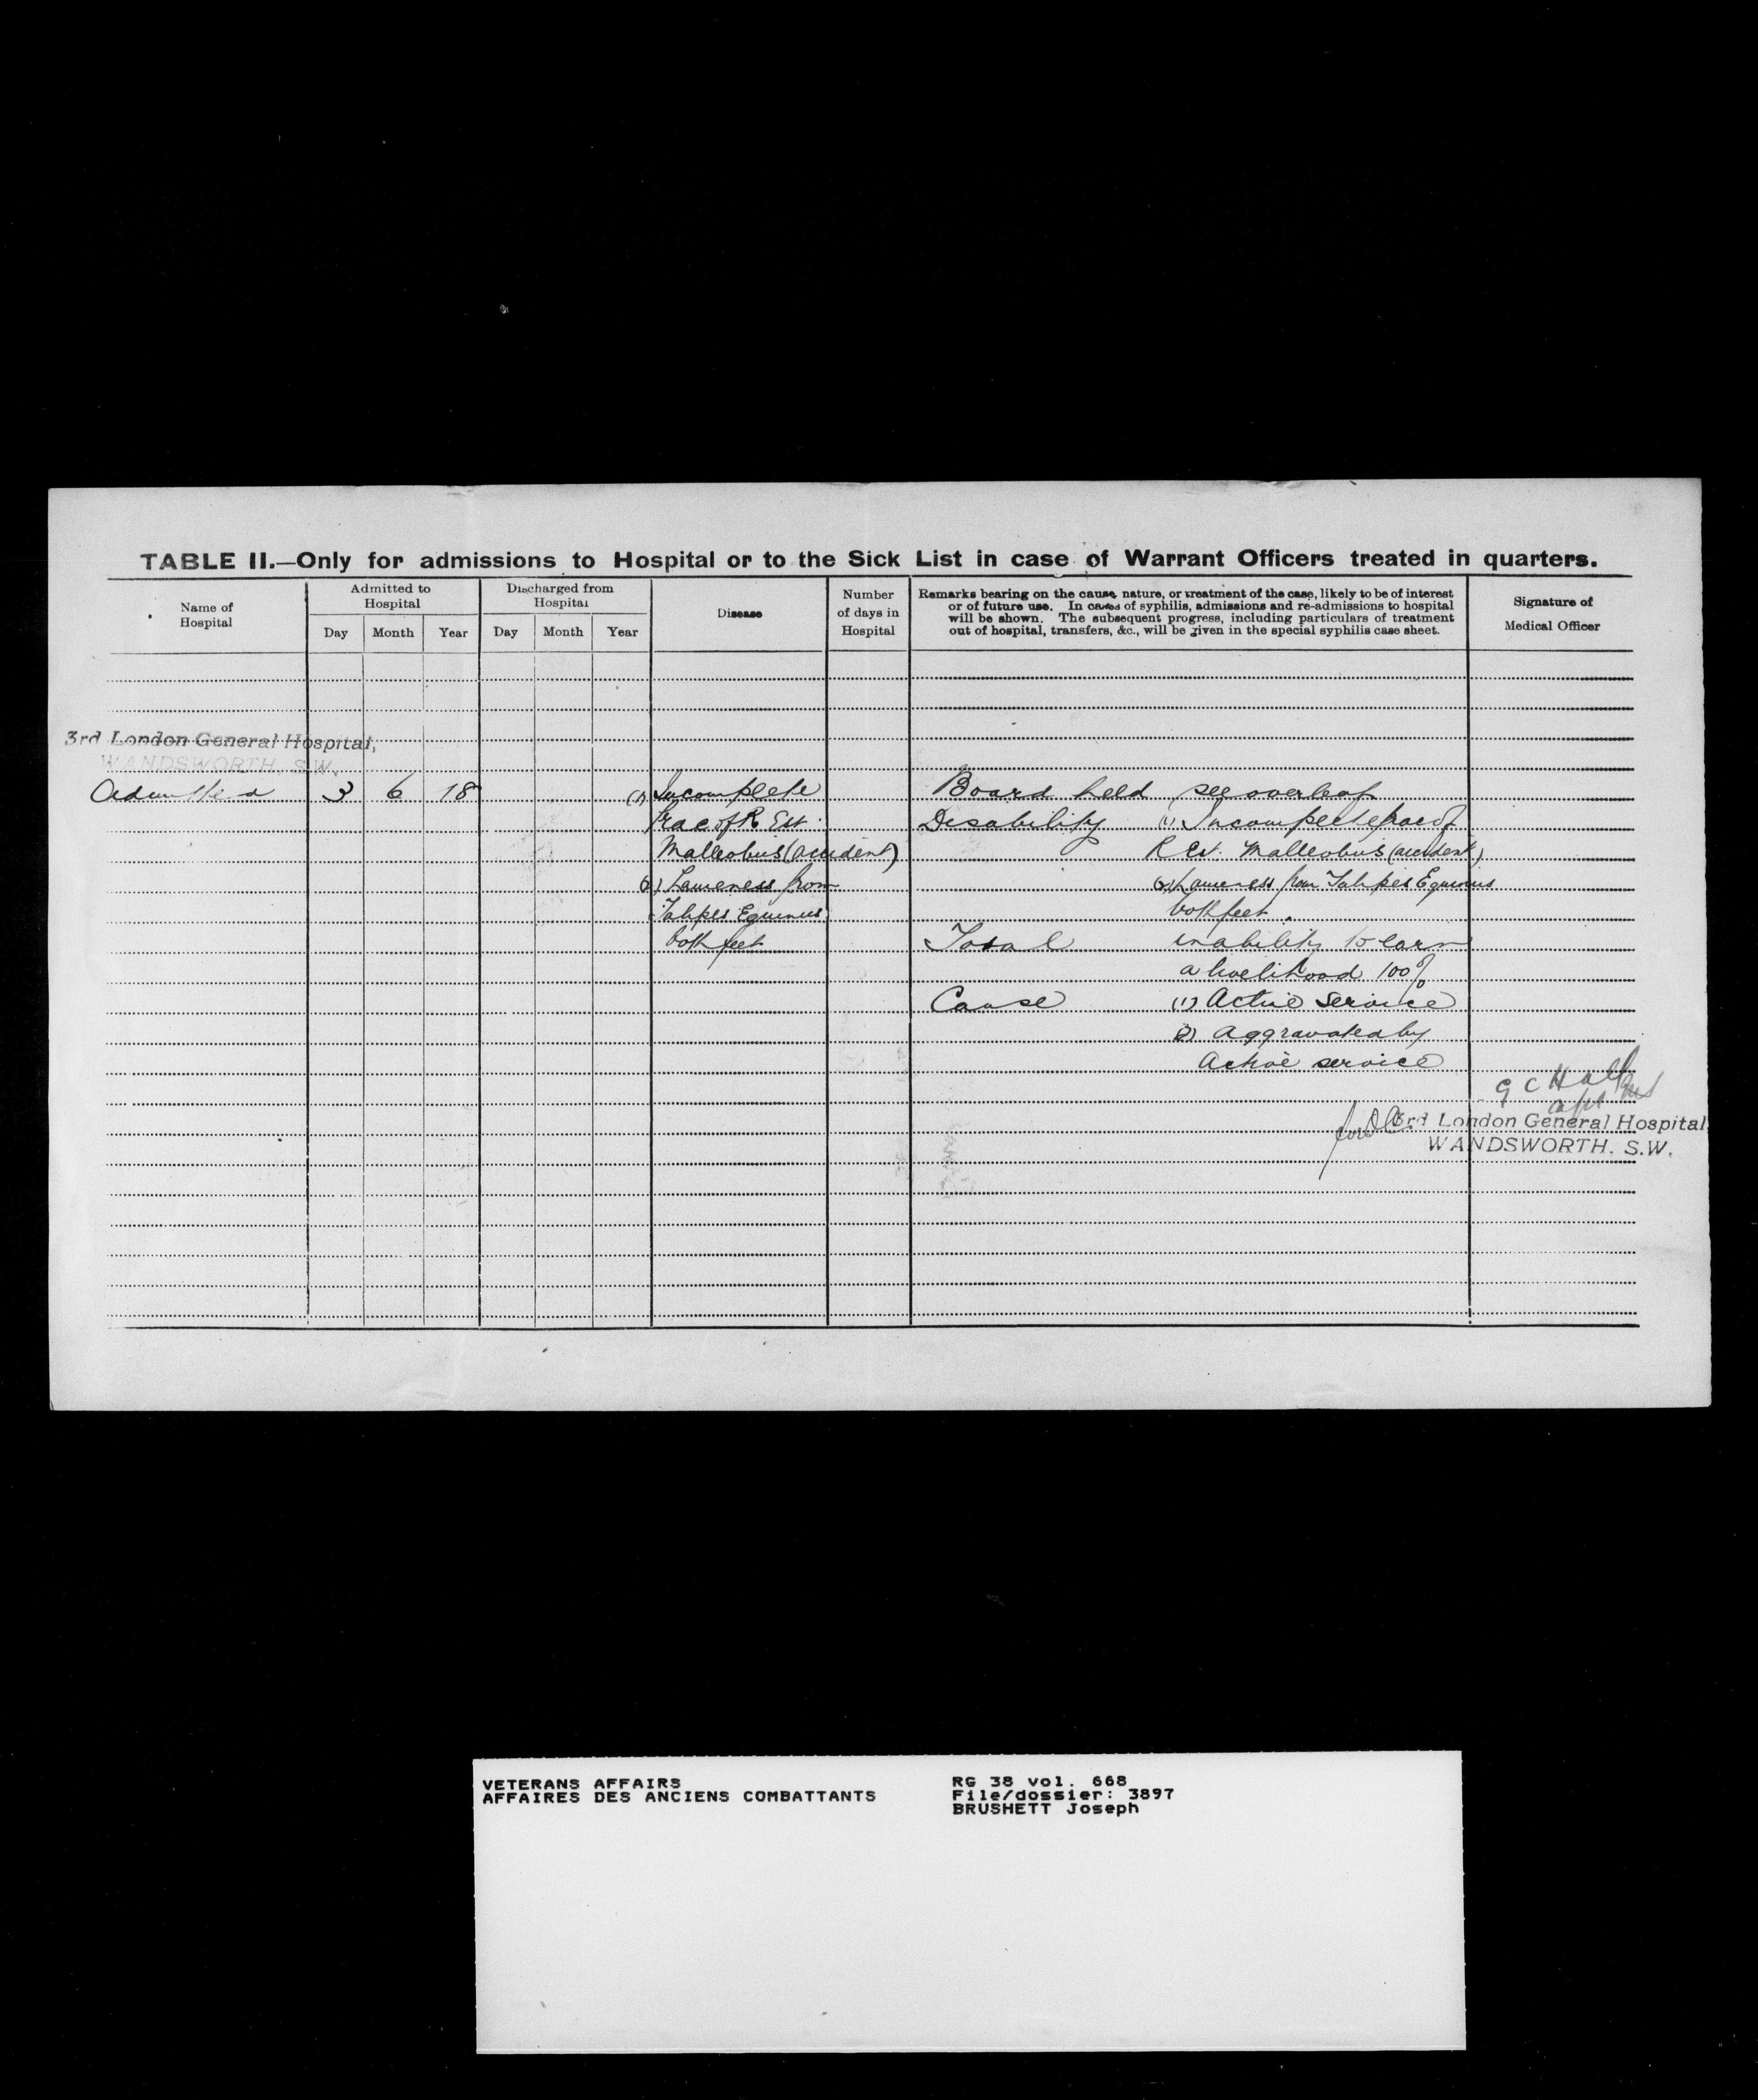 TABLE II.—Only for admissions to Hospital or to the Sick List in case of Warrant Officers treated in quarters.
Name of Hospital
Admitted to Hospital
Day Month Year
Discharged from Hospital
Day Month Year
Disease
Number of days in Hospital
Remarks bearing on the cause, nature, or treatment of the case, likely to be of interest
or of future use. In cases of syphilis, admissions and re-admissions to hospital
will be shown. The subsequent progress, including particulars of treatment
out of hospital, transfers, &c., will be given in the special syphilis case sheet.
Signature of
Medical Officer
3rd London General Hospital,
WANDSWORTH, S.W.
Admitted 3 6 18
(1) Incomplete
Frac of R Ext.
Malleolus (accident)
(2) Lameness from
Talipes Equinus
both feet
Board held see overleaf
Disability (1) Incomplete frac of
R Ext. Malleolus (accident)
(2) Lameness from Talipes Equinus
both feet.
Total inability to earn
a livelihood 100%
Cause (1) Active Service
(2) Aggravated by
Active service
G C Hall
Capt
for O.C. 3rd London General Hospital
WANDSWORTH, S.W.
VETERANS AFFAIRS
AFFAIRES DES ANCIENS COMBATTANTS
RG 38 vol. 668
File/dossier: 3897
BRUSHETT Joseph